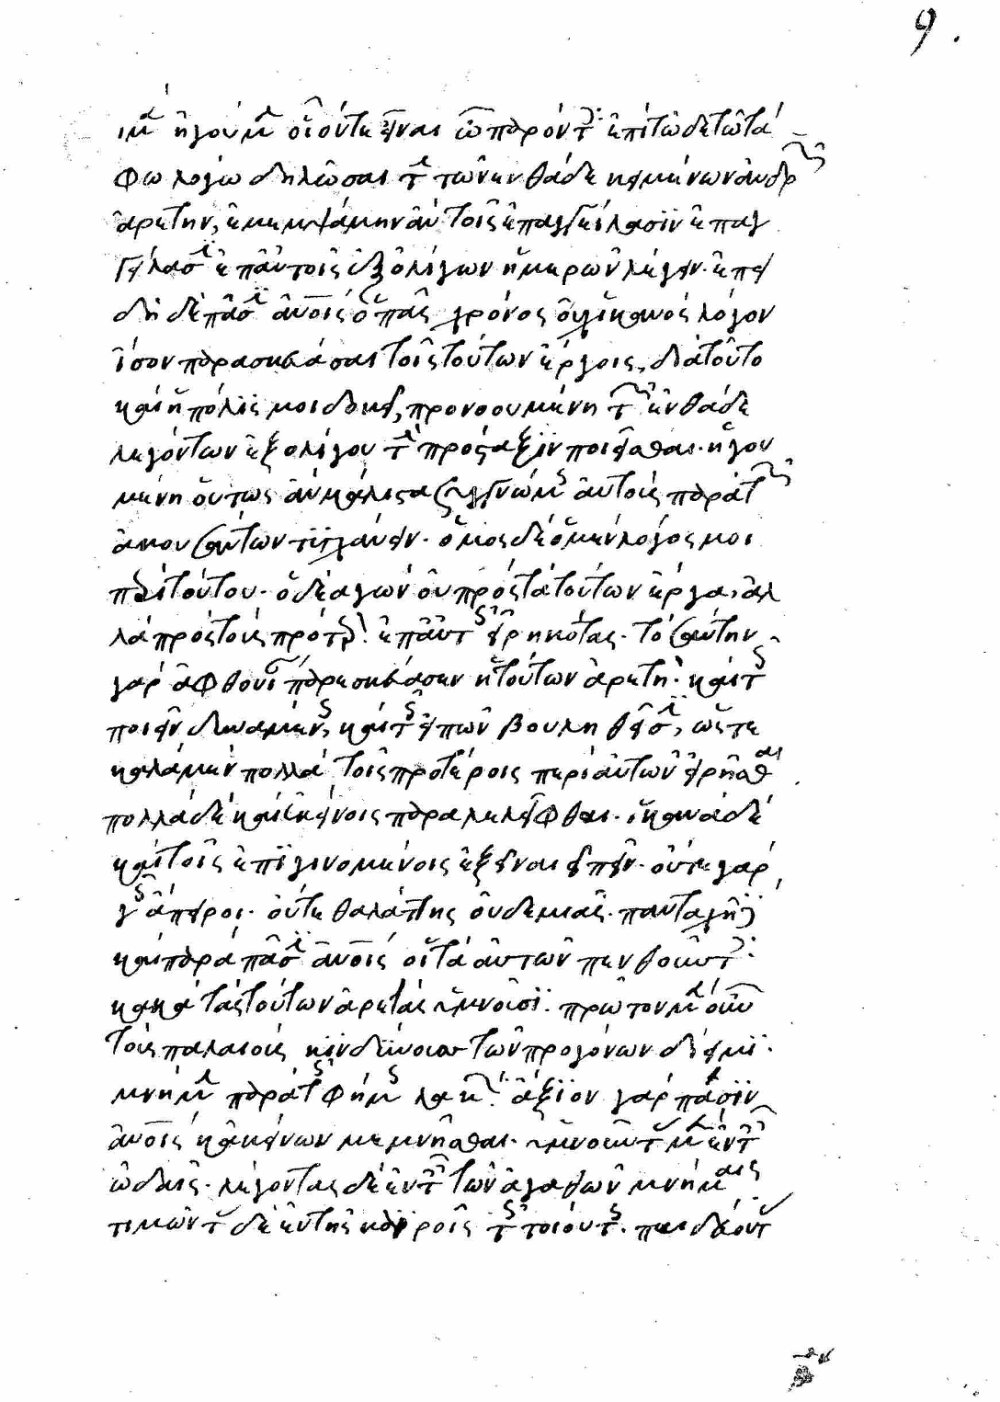 εἰ μὲν ἡγούμην οἷόν τε εἶναι ὦ παρόντες ἐπὶ τῶδε τῶ τά
φω λόγω δηλῶσαι τὴν τῶν ἐνθάδε κειμένων ἀνδρῶν
ἀρετὴν, ἐμεμψάμην ἂν τοῖς ἐπαγγείλασϊν ἐπαγ
γείλασιν ἐπ' αὐτοῖς ἐξ ὀλίγων ἡμερῶν λέγειν. ἐπει
δὴ δὲ πᾶσιν ἀνοις ὁ πᾶς χρόνος οὐχ ἱκανὸς λόγον
ἴσον παρασκευάσαι τοῖς τούτων ἔργοις, διὰ τοῦτο
καὶ ἡ πόλϊς μοι δοκεῖ, προνοουμένη τῶν ἐνθάδε
λεγόντων ἐξ ὀλίγου τὴν πρόσταξϊν ποιεῖσθαι. ἡγου
μένη οὕτως ἂν μάλιστα συγγνώμης αὐτοὺς παρὰ τῶν
ἀκουσάντων τϋγχάνειν. ὅμως δὲ ὁ μὲν λόγος μοι
περὶ τούτου. ὁ δὲ ἀγὼν οὐ πρὸς τὰ τούτων ἔργα, ἀλ
λὰ πρὸς τοὺς πρότερον ἐπ' αὐτοῖς εἰρηκότας. τοσαύτην
γὰρ ἀφθονίαν παρεσκεύασεν ἡ τούτων ἀρετὴ. καὶ τοῖς
ποιεῖν δυναμένοις, καὶ τοῖς εἰπεῖν βουληθεῖσιν, ὥστε
καλὰ μὲν πολλὰ τοῖς προτέροις περὶ αὐτῶν εἰρῆσθαι
πολλὰ δὲ καὶ ἐκείνοις παραλελεῖφθαι. ἱκανὰ δὲ
καὶ τοῖς ἐπϊγινομένοις ἐξεῖναι εἰπεῖν. οὔτε γὰρ
γῆς ἄπειροι. οὔτε θαλάττης οὐδεμιᾶς. πανταχῆ δὲ
καὶ παρὰ πᾶσιν ἀνοις οἱ τὰ αὐτῶν πενθοῦντες.
κακὰ τὰς τούτων ἀρετὰς ὑμνοῦσϊ. πρῶτον μὲν οὖν
τοὺς παλαιοὺς κϊνδϋνους τῶν προγόνων δίειμϊ.
μνήμην παρὰ τῆς φήμης λαβών. ἄξϊον γὰρ πᾶσϊν
ἀνοις κἀκείνων μεμνῆσθαι. ὑμνοῦντας μὲν ἐν ταῖς
ὠδαῖς. λέγοντας δὲ ἐν ταῖς τῶν ἀγαθῶν μνήμαις
τιμῶντας δὲ ἐν τοῖς καϊροῖς τοῖς τοιούτοις. παιδεύοντας
9.